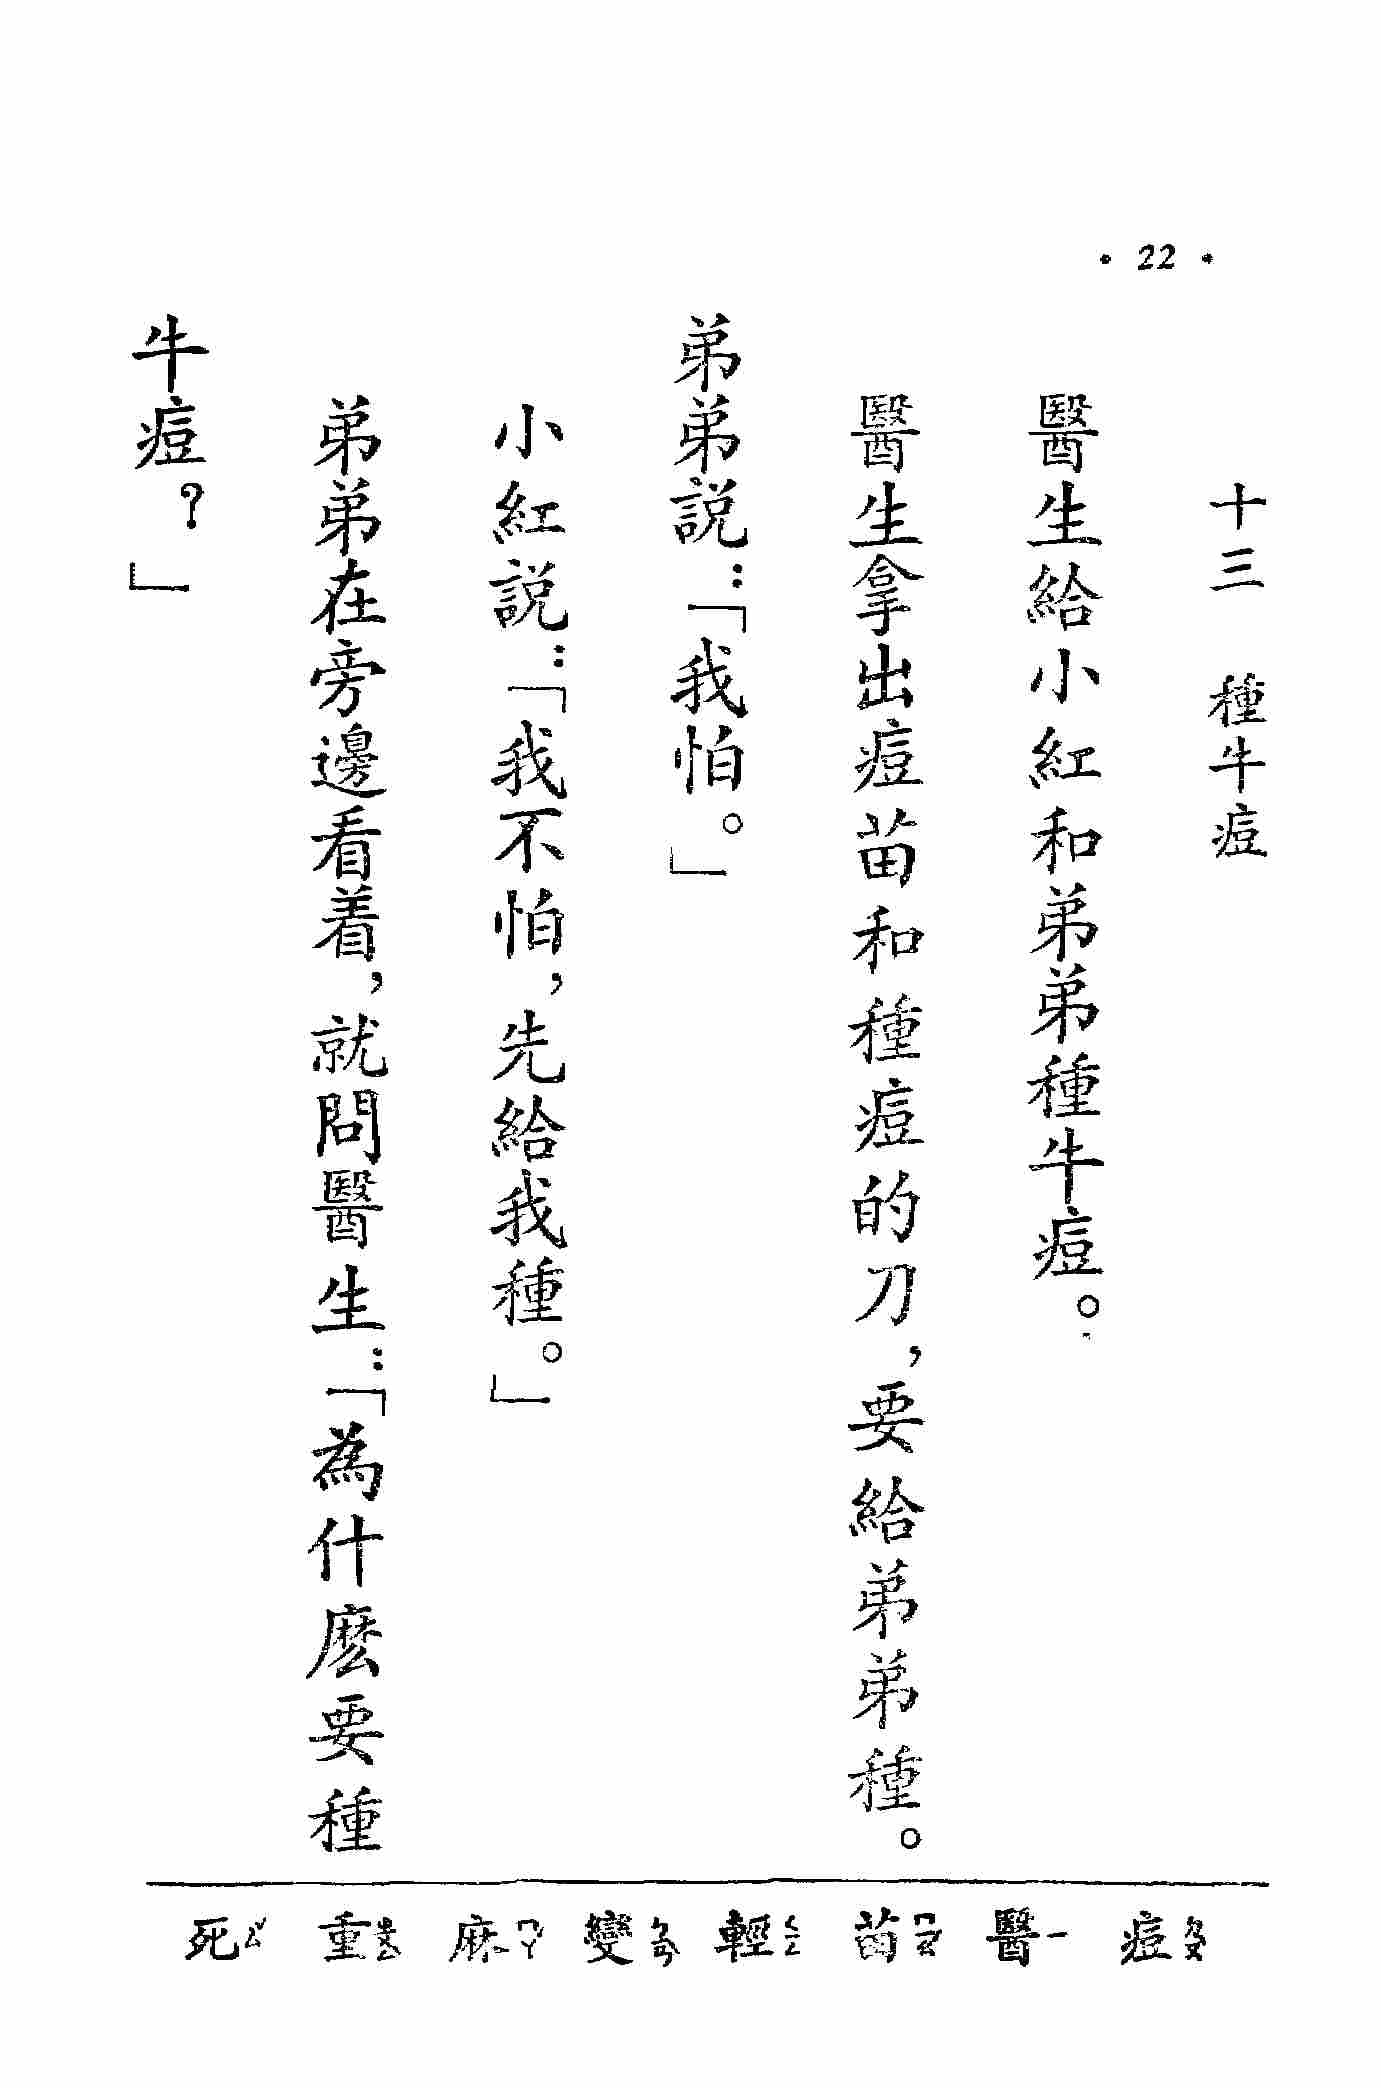 • 22 •
十三 種牛痘
醫生給小紅和弟弟種牛痘。
醫生拿出痘苗和種痘的刀，要給弟弟種。
弟弟説：「我怕。」
小紅説：「我不怕，先給我種。」
弟弟在旁邊看着，就問醫生：「為什麽要種
牛痘？」
痘ㄉㄡ 醫ㄧ 苗ㄇㄧㄠ 輕ㄑㄧㄥ 變ㄅㄧㄢ 麻ㄇㄚ 重ㄓㄨㄥ 死ㄙ